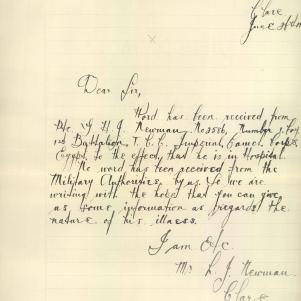 Clare
June 26th
Dear Sir,
Word has been received from
Pte. A H J. Newman, No 3556, Number 1 Coy
1st Battalion, I. C. C. Imperial Camel Corps
Egypt to the effect, that he is in Hospital.
No word has been received from the
Military Authorities, by us. So we are
writing with the hope that you can give
us some information as regards the
nature of his illness.
I am &c
Mr L. J. Newman
Clare